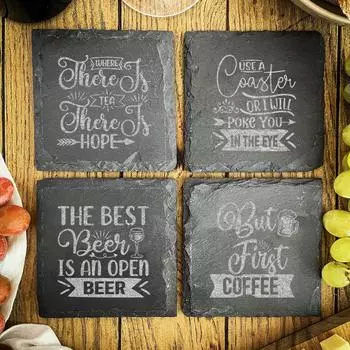 WHERE
There Is
TEA
There Is
HOPE
USE A
Coaster
OR I WILL
POKE YOU
IN THE EYE
THE BEST
Beer
IS AN OPEN
BEER
But
First
COFFEE